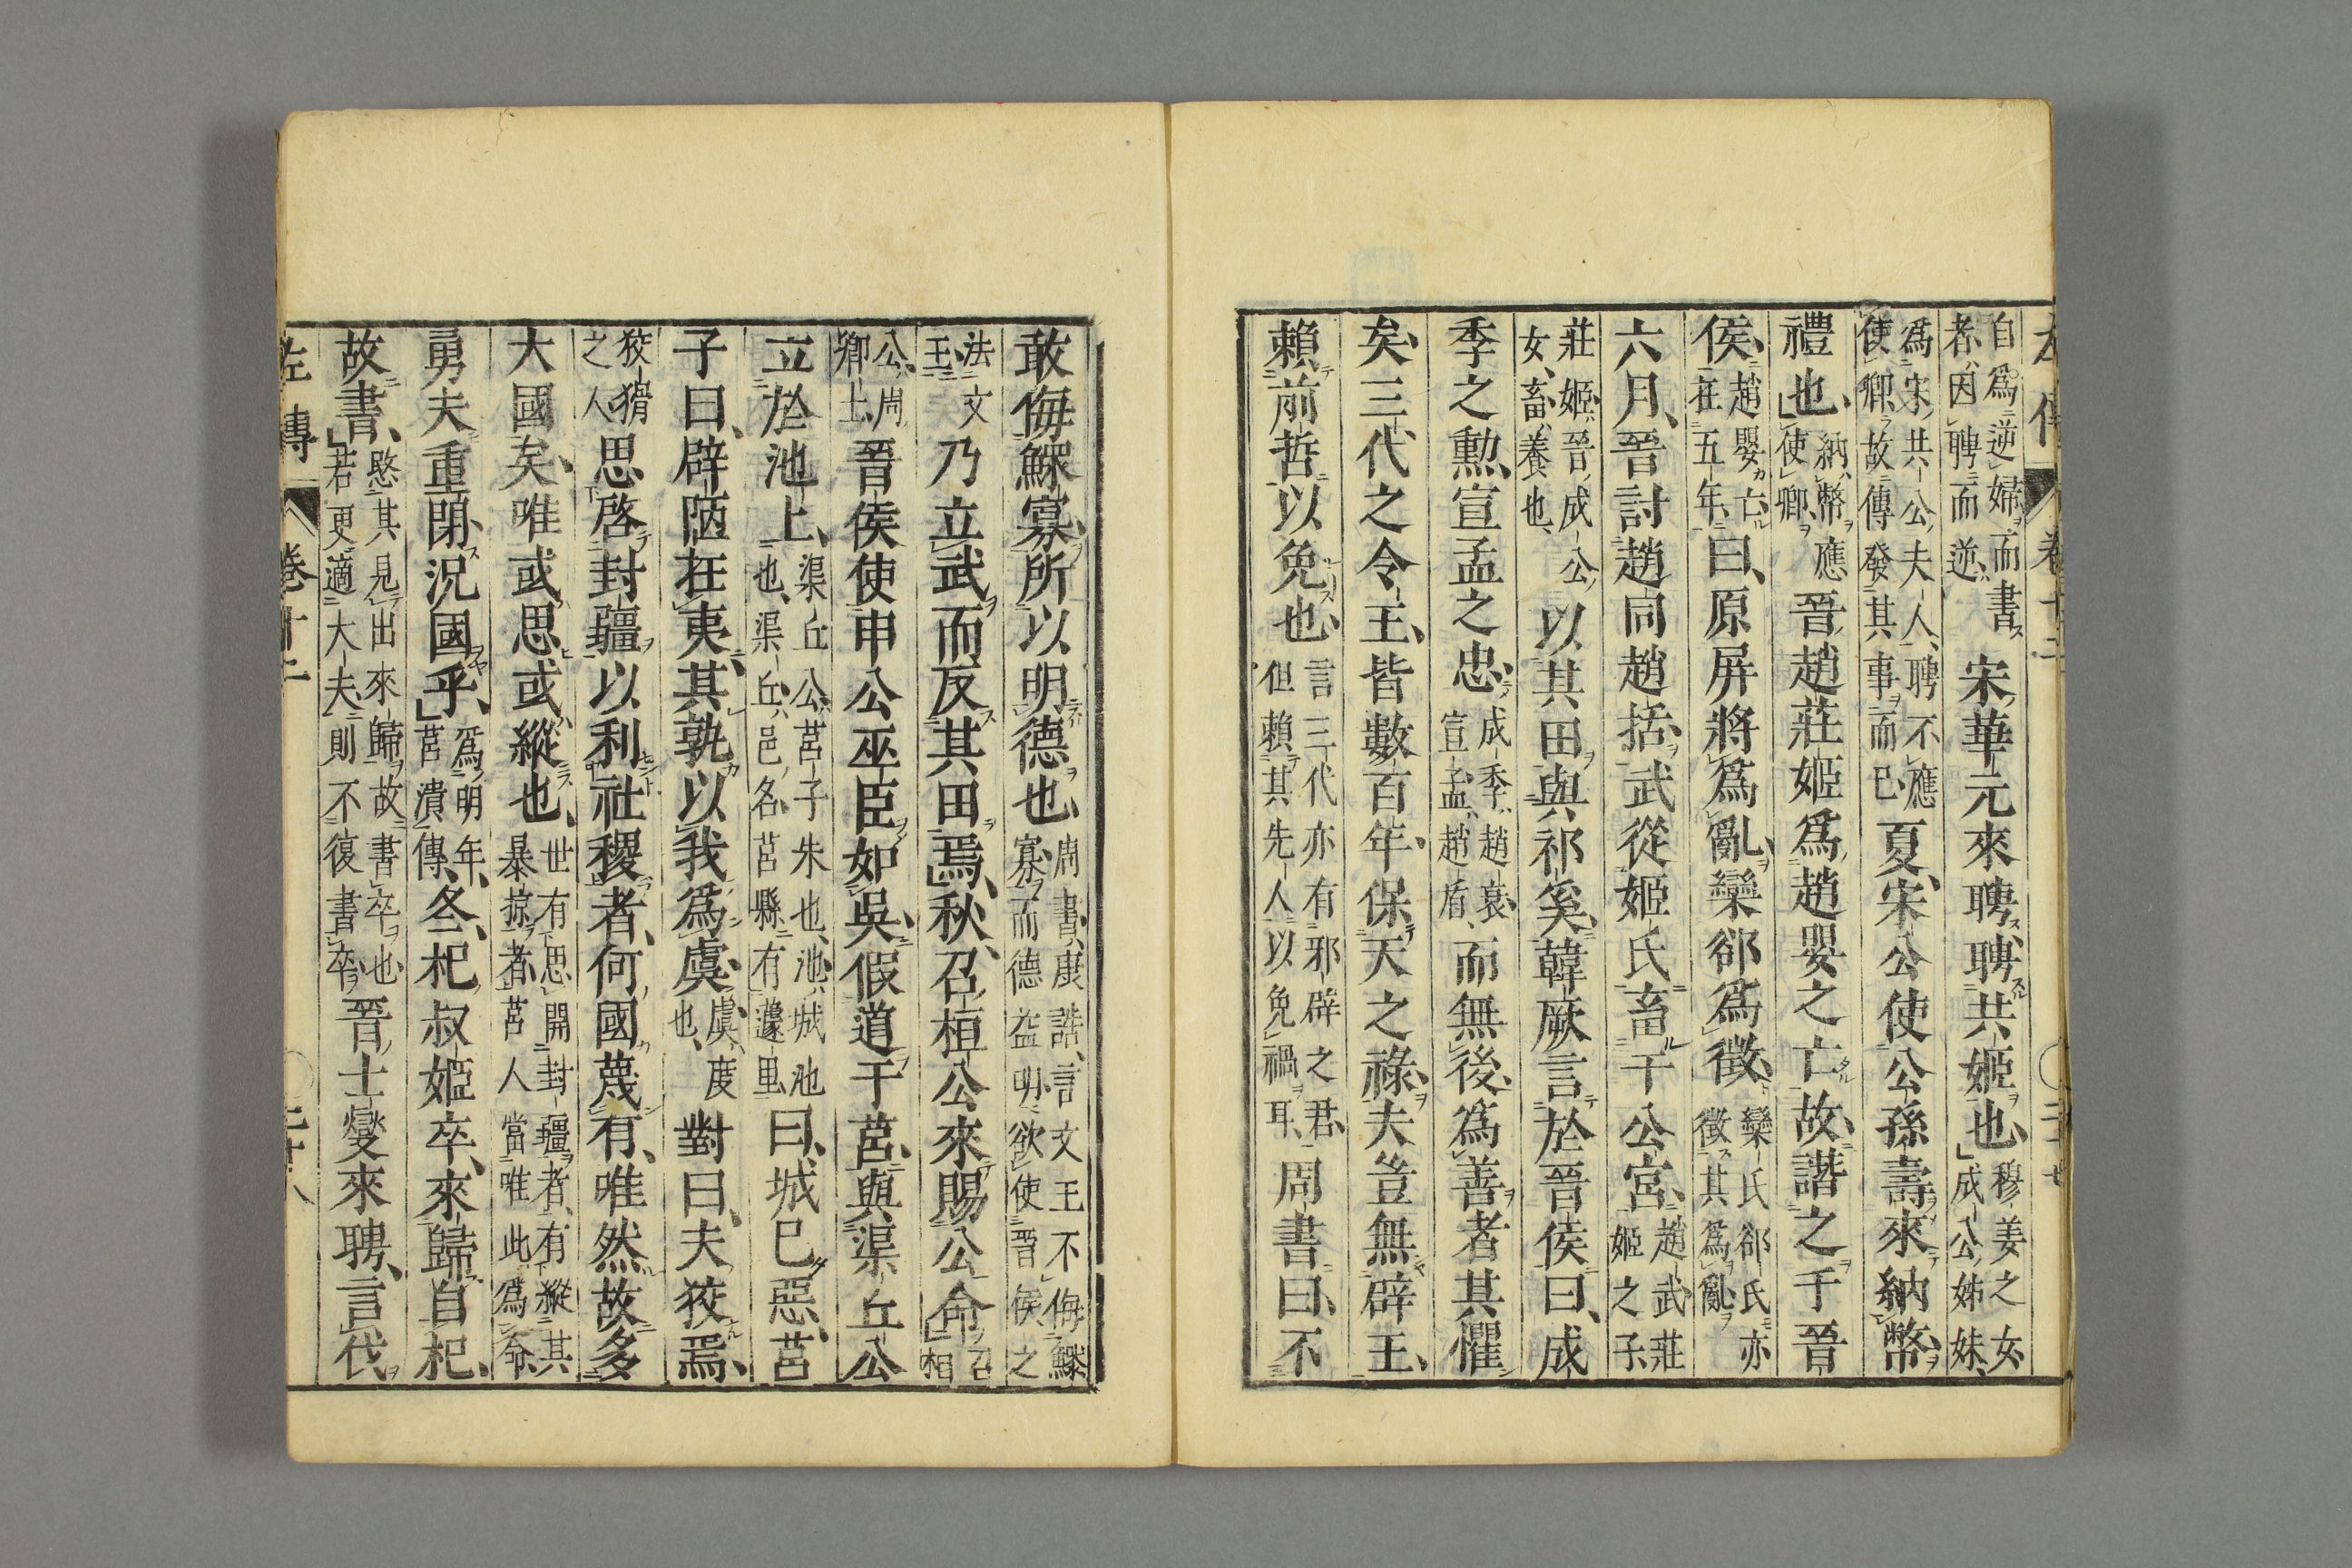 左傳 卷十二 二十七
自爲逆婦而書者因聘而逆宋華元來聘聘共姬也穆姜之女成公姊妹
爲宋共公夫人聘不應使卿故傳發其事而已夏宋公使公孫壽來納幣
禮也納幣應使卿晉趙莊姬爲趙嬰之亡故譖之于晉
侯趙嬰亡在五年曰原屏將爲亂欒郤爲徵欒氏郤氏亦徵其爲亂
六月晉討趙同趙括武從姬氏畜于公宮趙武莊姬之子
莊姬晉成公女畜養也以其田與祁奚韓厥言於晉侯曰成
季之勲宣孟之忠成季趙衰宣孟趙盾而無後爲善者其懼
矣三代之令王皆數百年保天之祿夫豈無辟王
賴前哲以免也言三代亦有邪辟之君但賴其先人以免禍耳周書曰不
敢侮鰥寡所以明德也周書康誥言文王不侮鰥寡而德益明欲使晉侯之
法文王乃立武而反其田焉秋召桓公來賜公命召桓
公周卿士晉侯使申公巫臣如吳假道于莒與渠丘公
立於池上渠丘公莒子朱也池城池也渠丘邑名莒縣有蘧里曰城已惡莒
子曰辟陋在夷其孰以我爲虞虞度也對曰夫狡焉
狡猾之人思啓封疆以利社稷者何國蔑有唯然故多
大國矣唯或思或縱也世有思開封疆者有縱其暴掠者莒人當唯此爲命
勇夫重閉況國乎爲明年莒潰傳冬杞叔姬卒來歸自杞
故書愍其見出來歸故書卒也若更適大夫則不復書卒晉士燮來聘言伐
左傳 卷十二 二十八